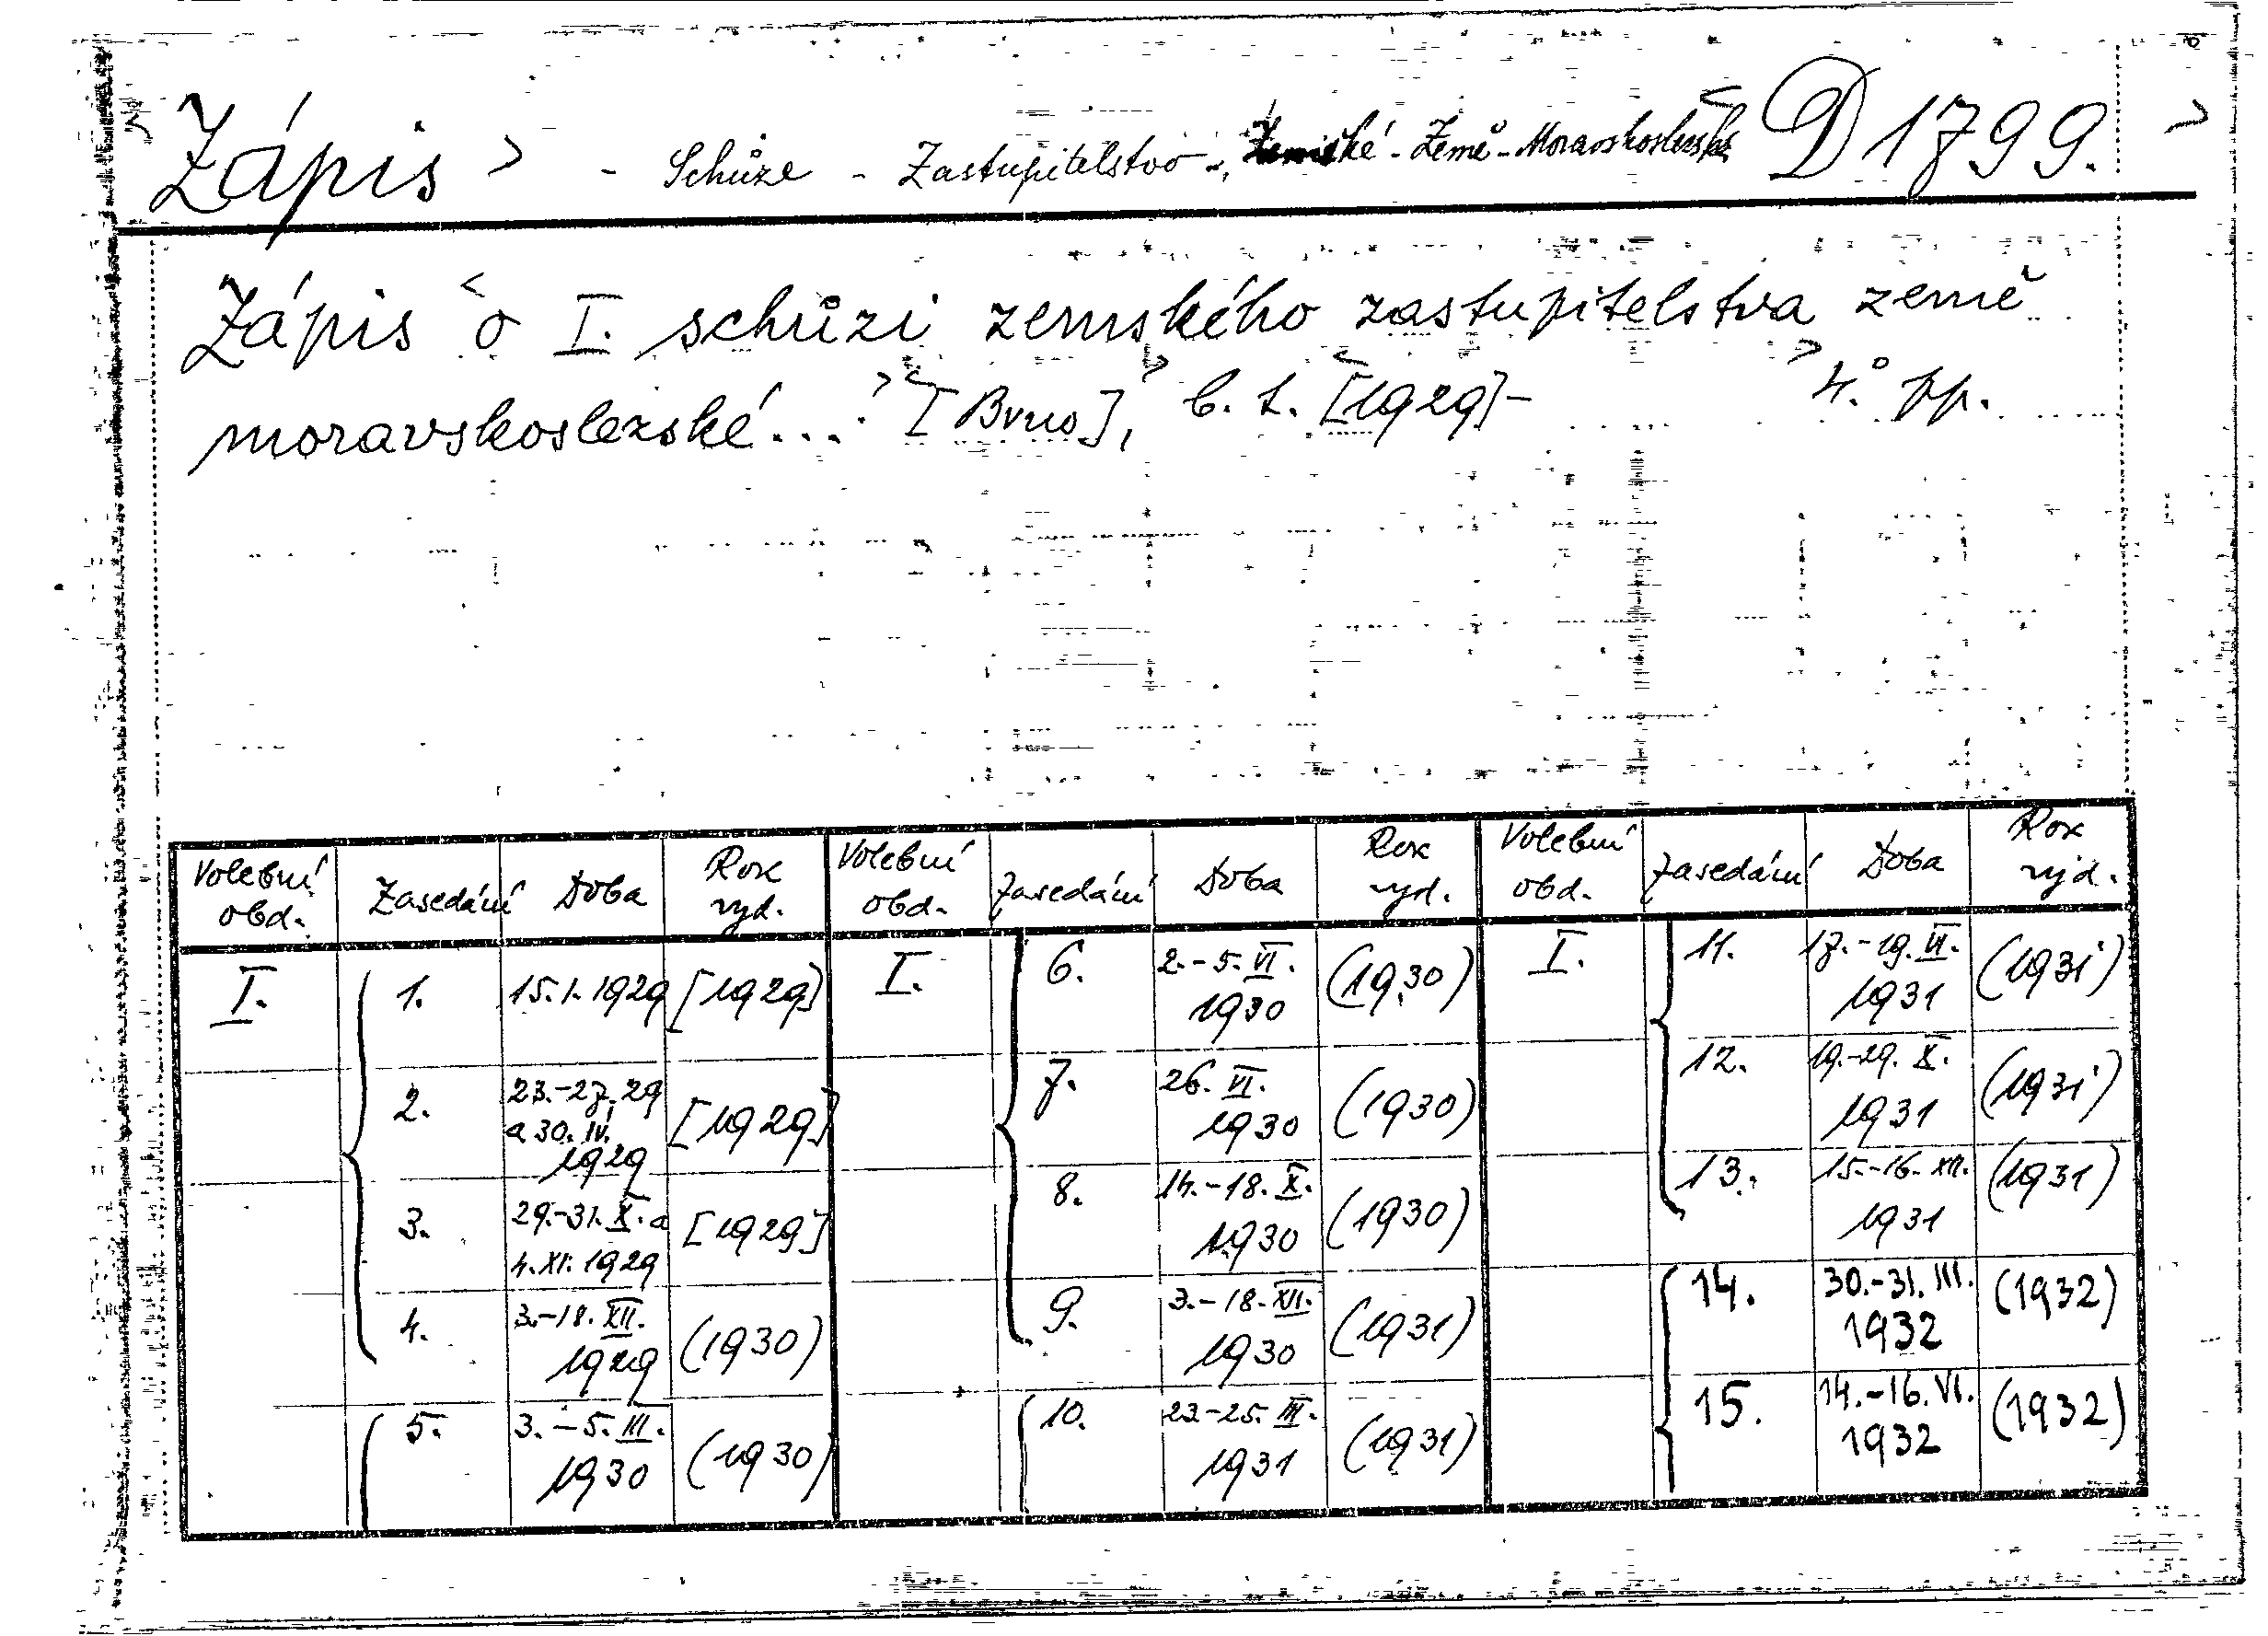 Zápis - Schůze - Zastupitelstvo - Zemské - Země - Moravskoslezská D 1799.
Zápis o I. schůzi zemského zastupitelstva země
moravskoslezské... [Brno], b. t. [1929]- 4.° pp.
Volební obd. Zasedání Doba Rok vyd. Volební obd. Zasedání Doba Rok vyd. Volební obd. Zasedání Doba Rok vyd.
I. 1. 15.1.1929 [1929] I. 6. 2.-5. VI. 1930 (1930) I. 11. 17.-19. VI. 1931 (1931)
2. 23.-27. 29 a 30. IV. 1929 [1929] 7. 26. VI. 1930 (1930) 12. 19.-29. X. 1931 (1931)
3. 29.-31. X. a 4. XI. 1929 [1929] 8. 14.-18. X. 1930 (1930) 13. 15.-16. XII. 1931 (1931)
4. 3.-18. XII. 1929 (1930) 9. 3.-18. XII. 1930 (1931) 14. 30.-31. III. 1932 (1932)
5. 3.-5. III. 1930 (1930) 10. 23-25. III. 1931 (1931) 15. 14.-16. VI. 1932 (1932)